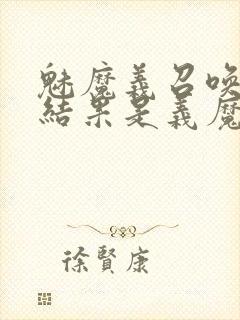 魅魔義召喚
結果是義魔
徐賢康